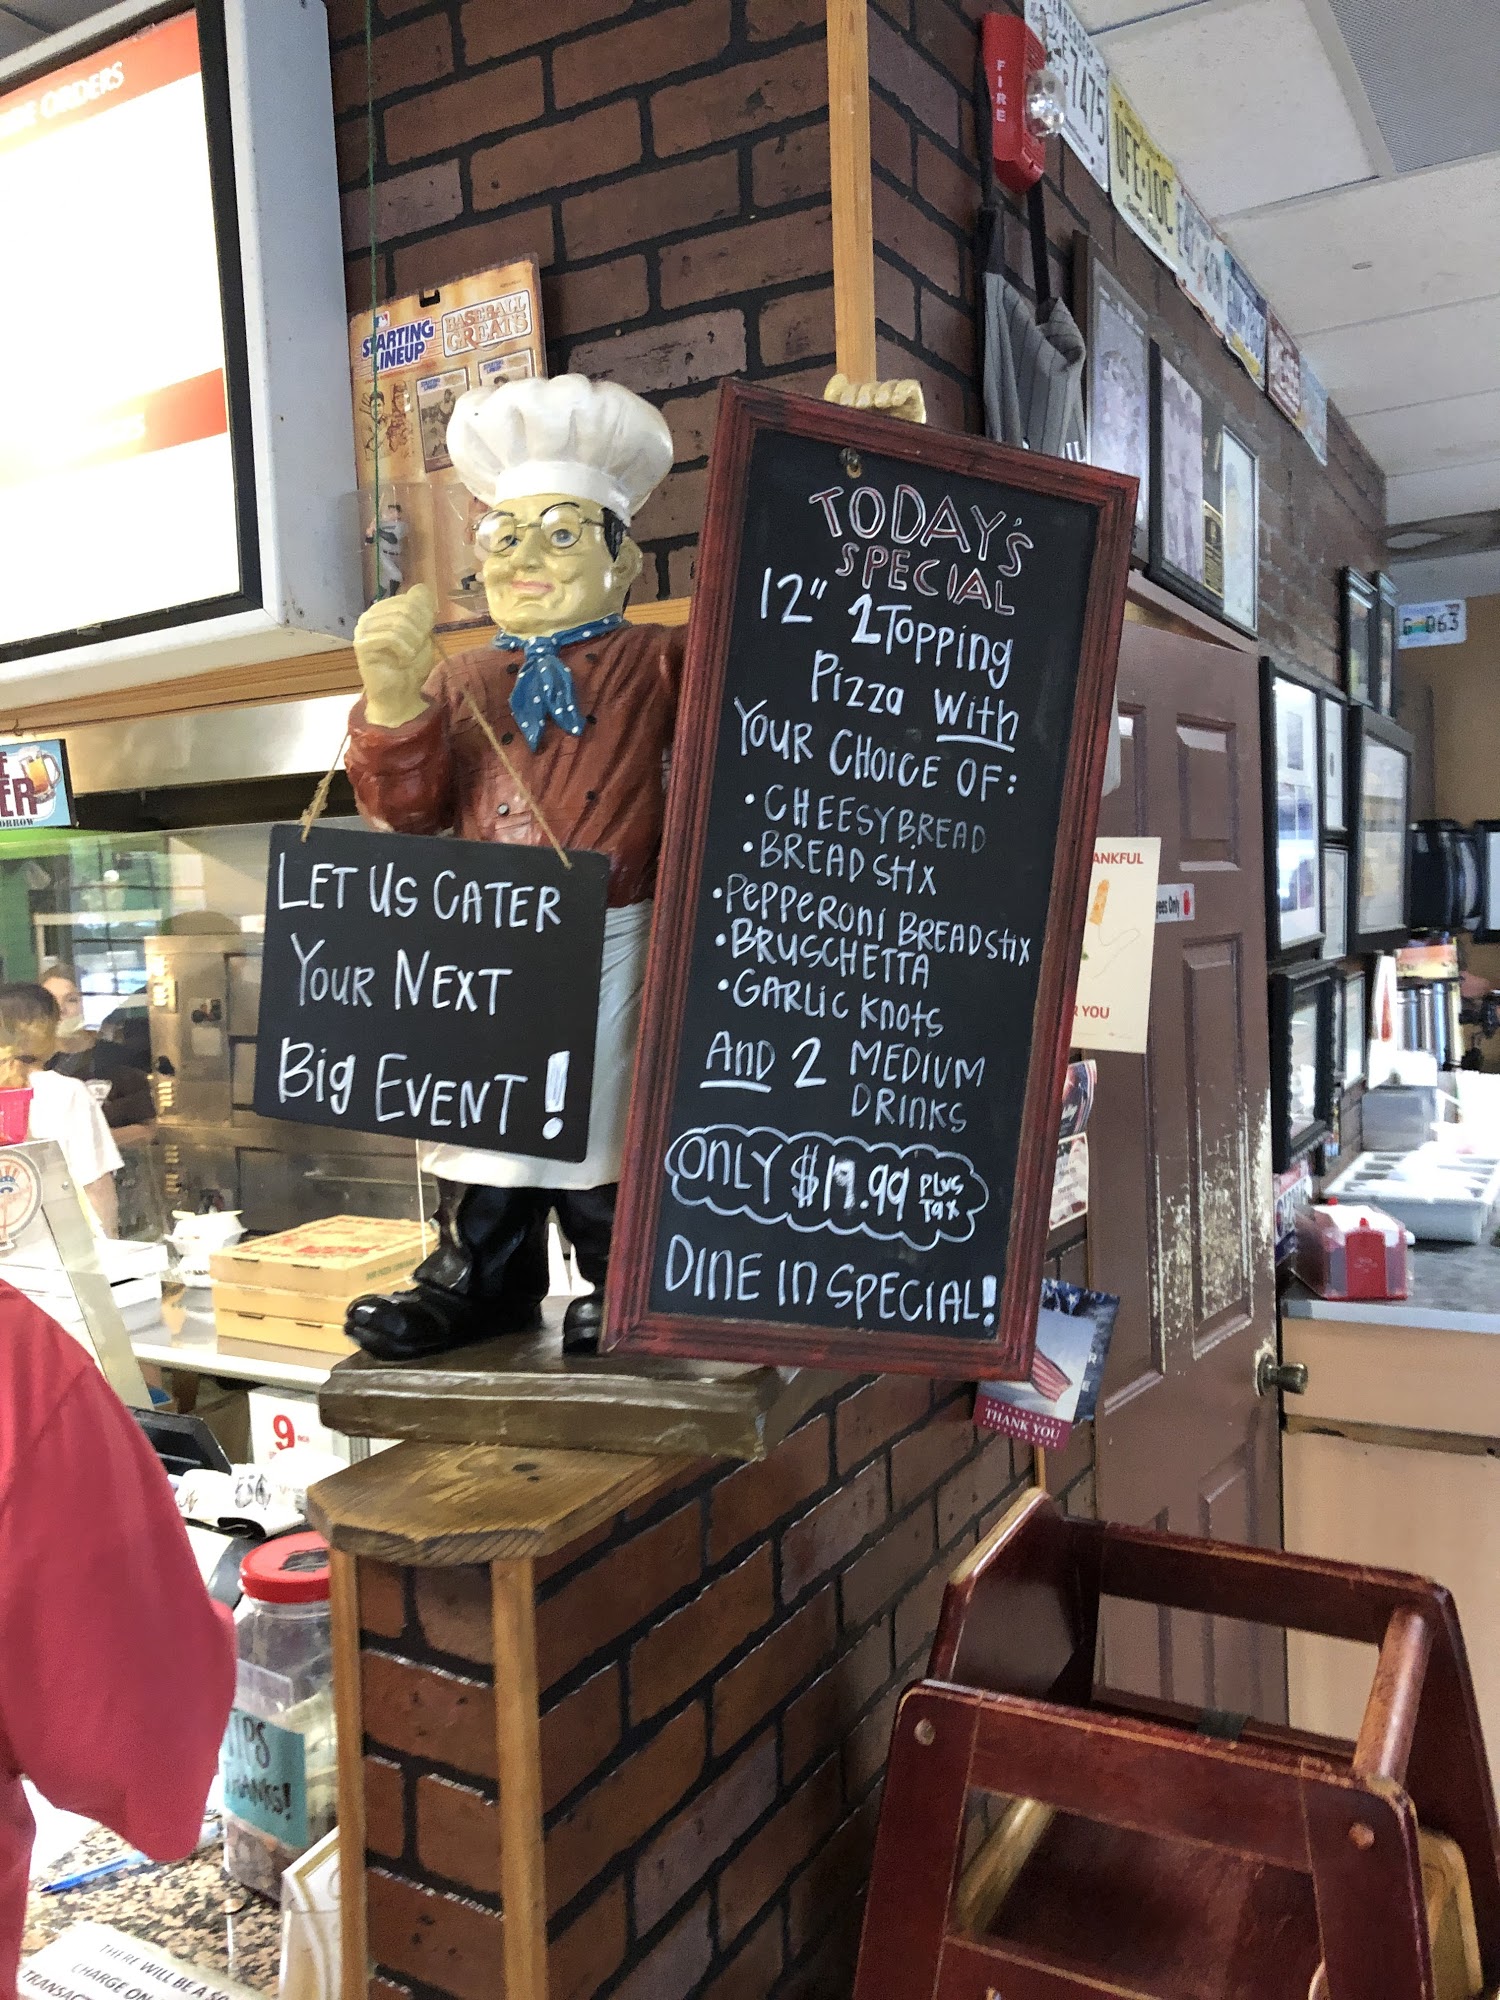 ORDERS
FIRE
7475
STARTING
LINEUP
BASEBALL
GREATS
TODAY'S
SPECIAL
12" 2 Topping
Pizza With
YOUR CHOICE OF:
• CHEESYBREAD
• BREADStiX
• PEPPERONI BREADStix
• BRUSCHETTA
• GARLIC Knots
AND 2 MEDIUM
DRINKS
ONLY $19.99 PLUS
TAX
DINE IN SPECIAL!
LET US CATER
YOUR NEXT
Big EVENT!
ANKFUL
R YOU
Only
G 063
THANK YOU
9
TIPS
THANKS!
THERE WILL BE A
CHARGE ON